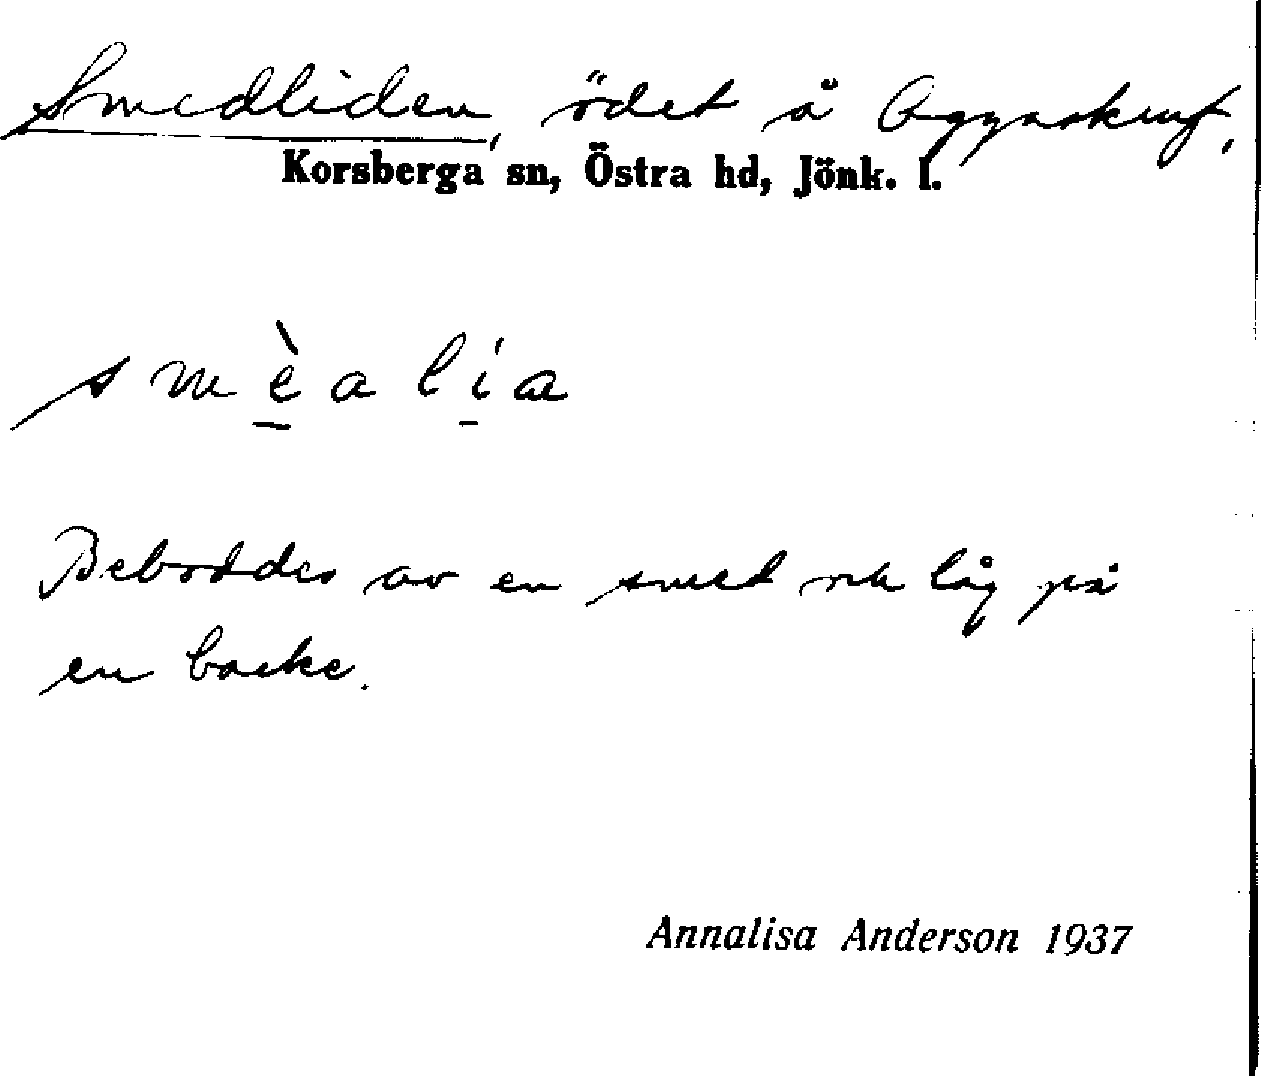 Smedliden, ödet å Aggaskruf,
Korsberga sn, Östra hd, Jönk. l.
smèalía
Beboddes av en smed och låg på
en backe.
Annalisa Anderson 1937